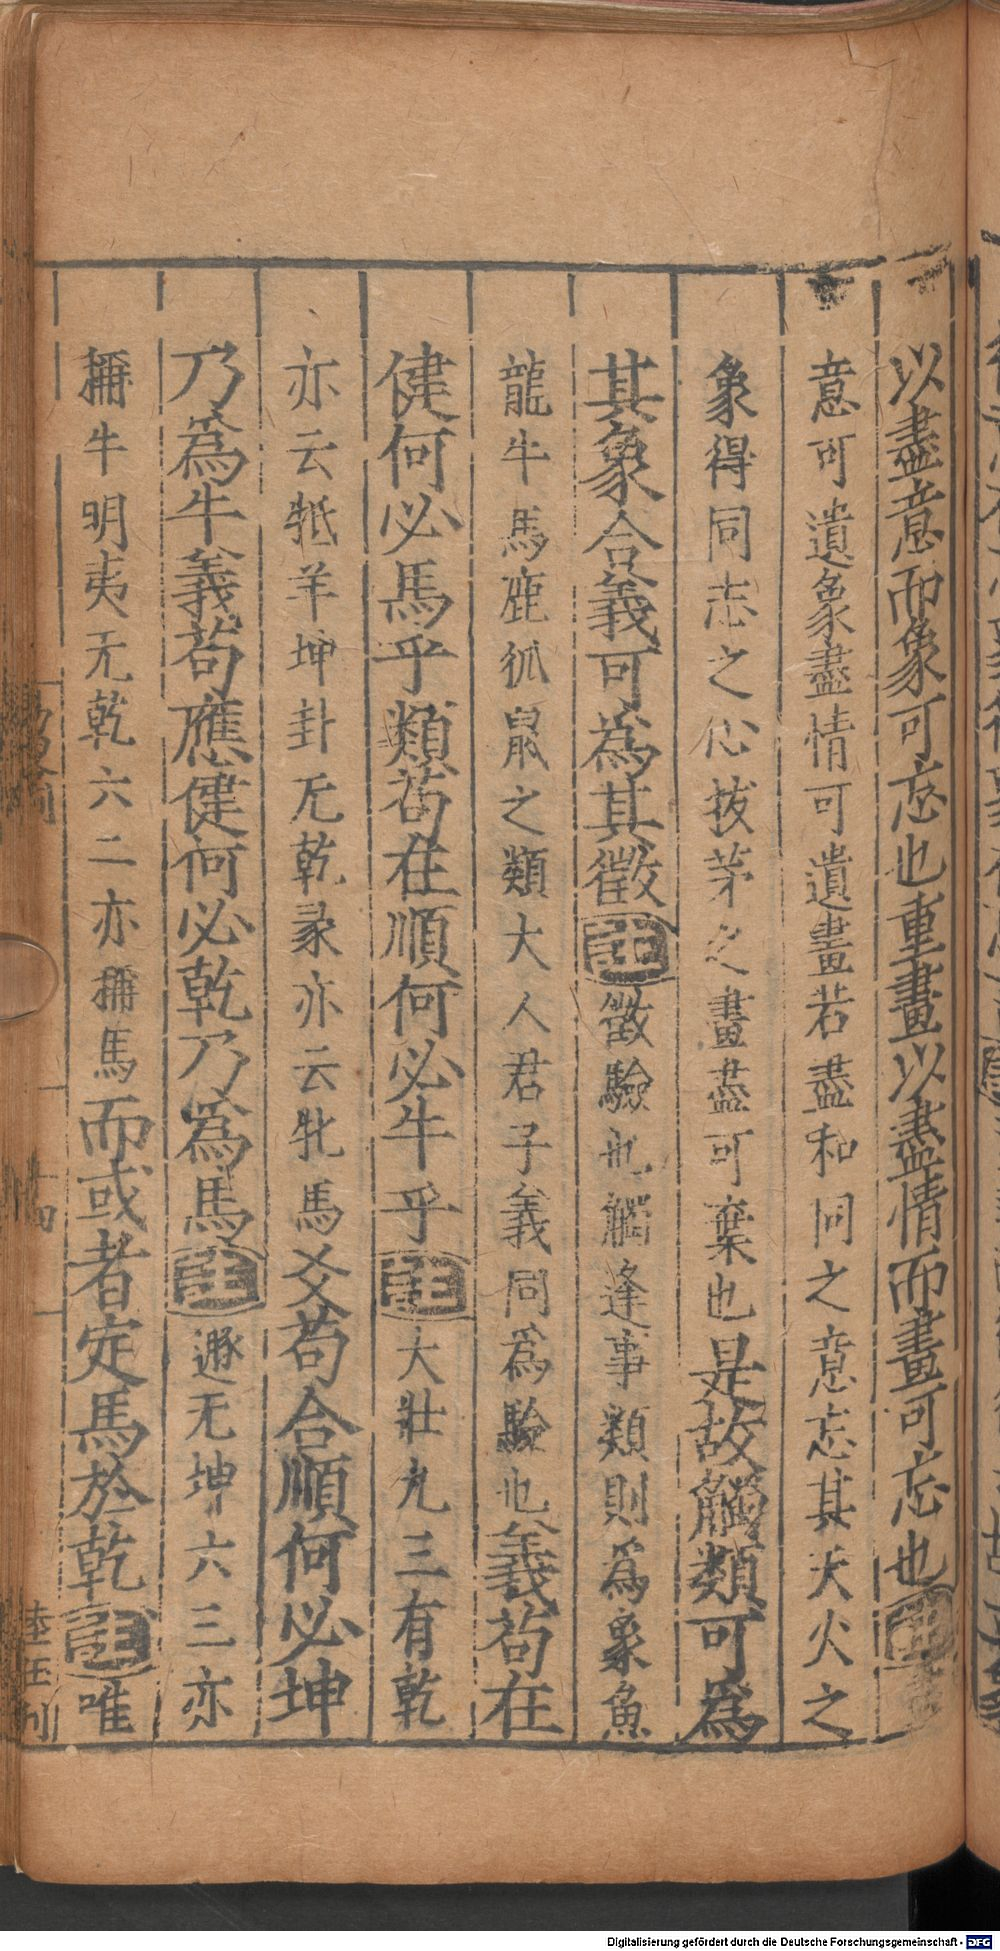 以盡意而象可忘也重畫以盡情而畫可忘也註盡
意可遺象盡情可遺畫若盡和同之意忘其天火之
象得同志之心拔茅之畫盡可棄也是故觸類可為
其象合義可為其徵註徵驗也觸逢事類則為象魚
龍牛馬鹿狐鼠之類大人君子義同爲驗也義苟在
健何必馬乎類苟在順何必牛乎註大壯九三有乾
亦云羝羊坤卦无乾彖亦云牝馬爻苟合順何必坤
乃爲牛義苟應健何必乾乃爲馬註遯无坤六二亦
稱牛明夷无乾六二亦稱馬而或者定馬於乾註唯
十四
Digitalisierung gefördert durch die Deutsche Forschungsgemeinschaft - DFG